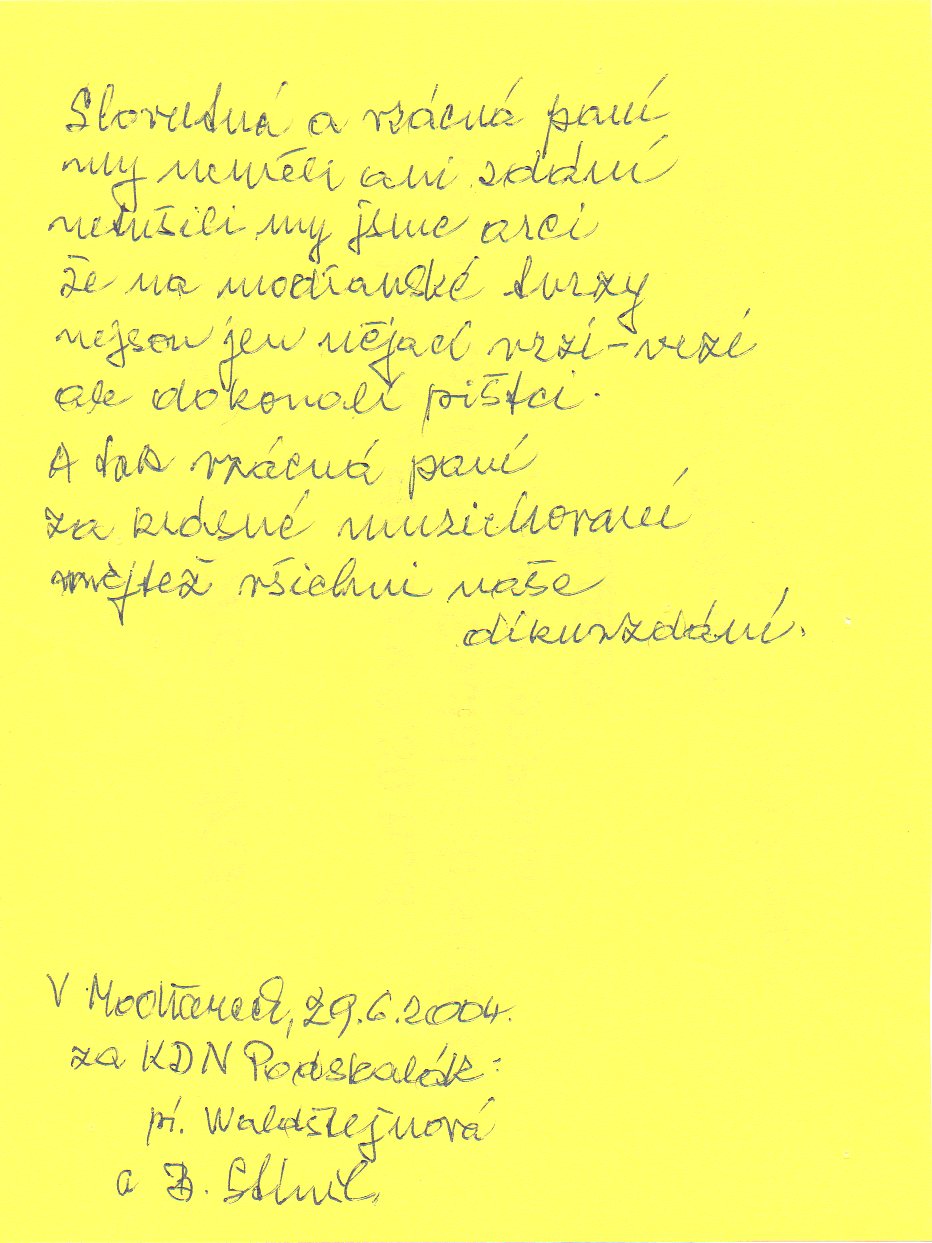 Slovutná a vzácná paní
my neměli ani zdání
netušili my jsme arci
že na modřanské tvrzy
nejsou jen nějací vrzi-vrzi
ale dokonalí pištci.
A tak vzácná paní
za krásné muzichování
mějtež všichni naše
díkuvzdání.
V Modřanech, 29.6.2004.
za KDN Podskalák:
pí. Waldštejnová
a